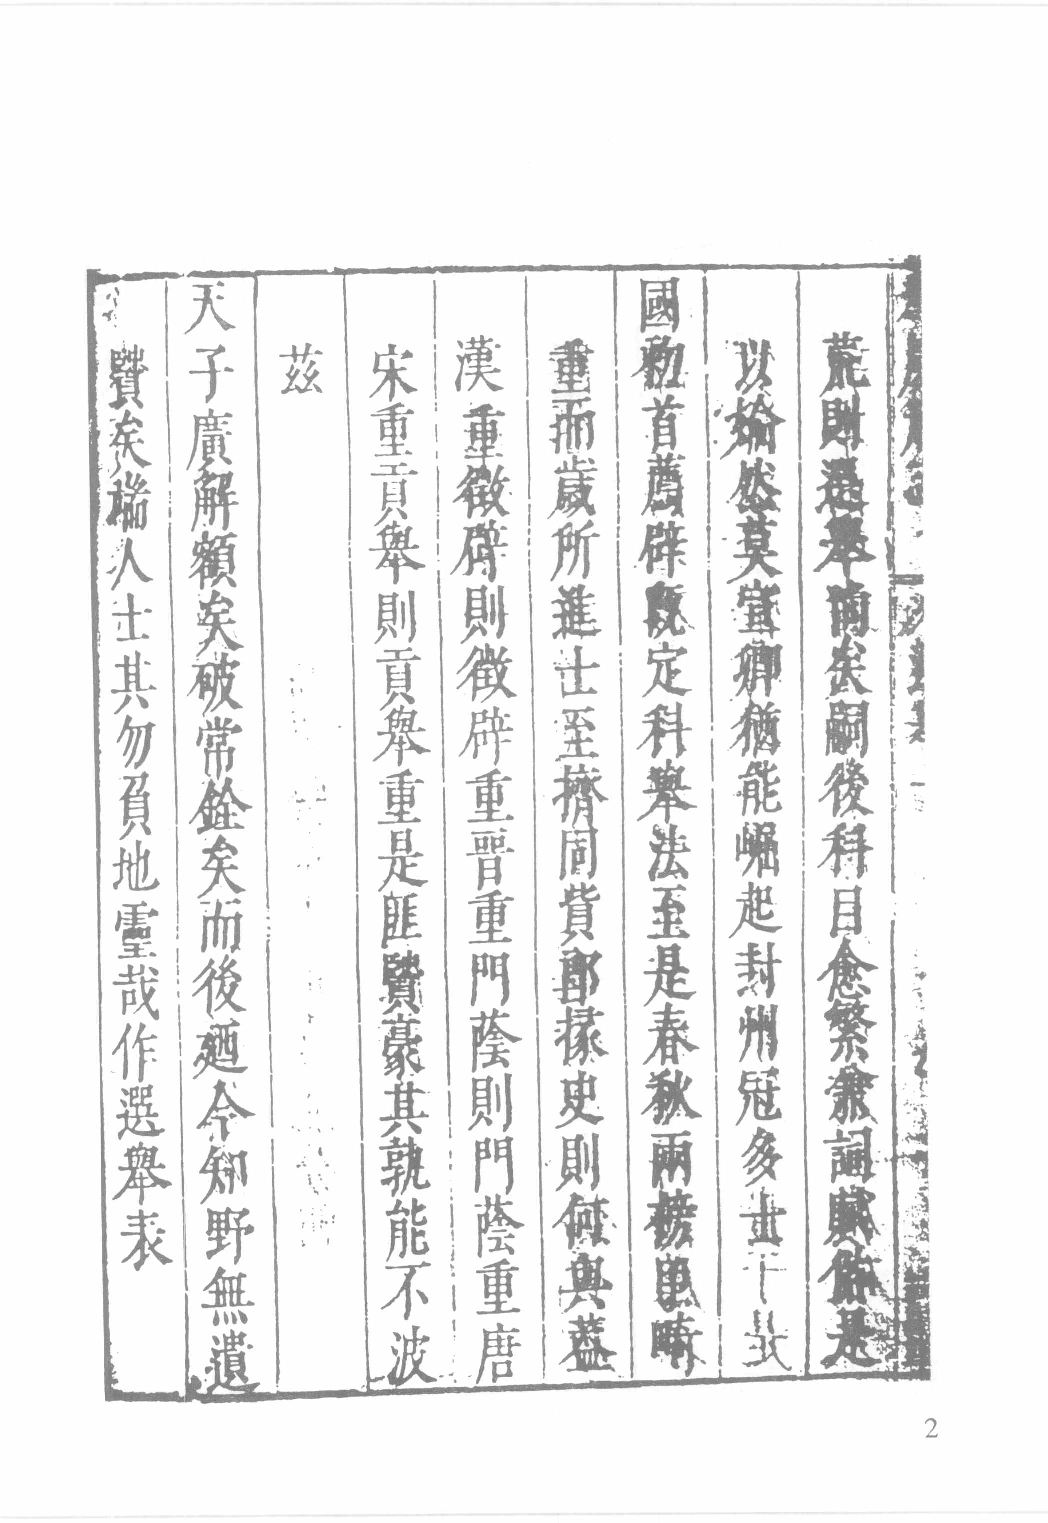 荒則選舉陋矣嗣後科目愈繁兼詞賦佈是
以然莫宣卿猶能崛起封州冠多士于茲
國初首薦辟既定科舉法至是春秋兩榜畸
重而歲所進士至擠同貲郎掾史則何與蓋
漢重徵辟則徵辟重晉重門蔭則門蔭重唐
宋重貢舉則貢舉重是匪賢豪其孰能不波
茲
天子廣解額矣破常銓矣而後廼今知野無遺
賢矣端人士其勿負地靈哉作選舉表
2